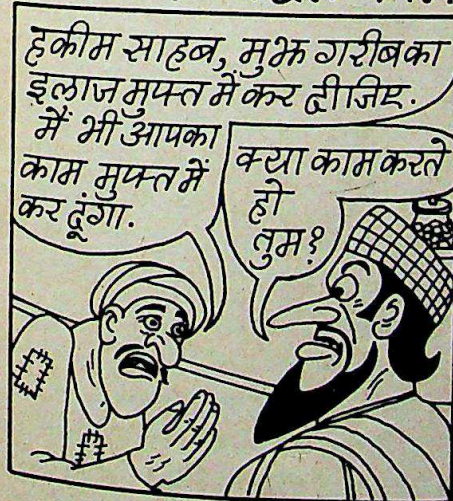 हकीम साहब, मुझ गरीब का
इलाज मुफ्त में कर दीजिए.
मैं भी आपका
काम मुफ्त में
कर दूंगा.
क्या काम करते
हो
तुम?